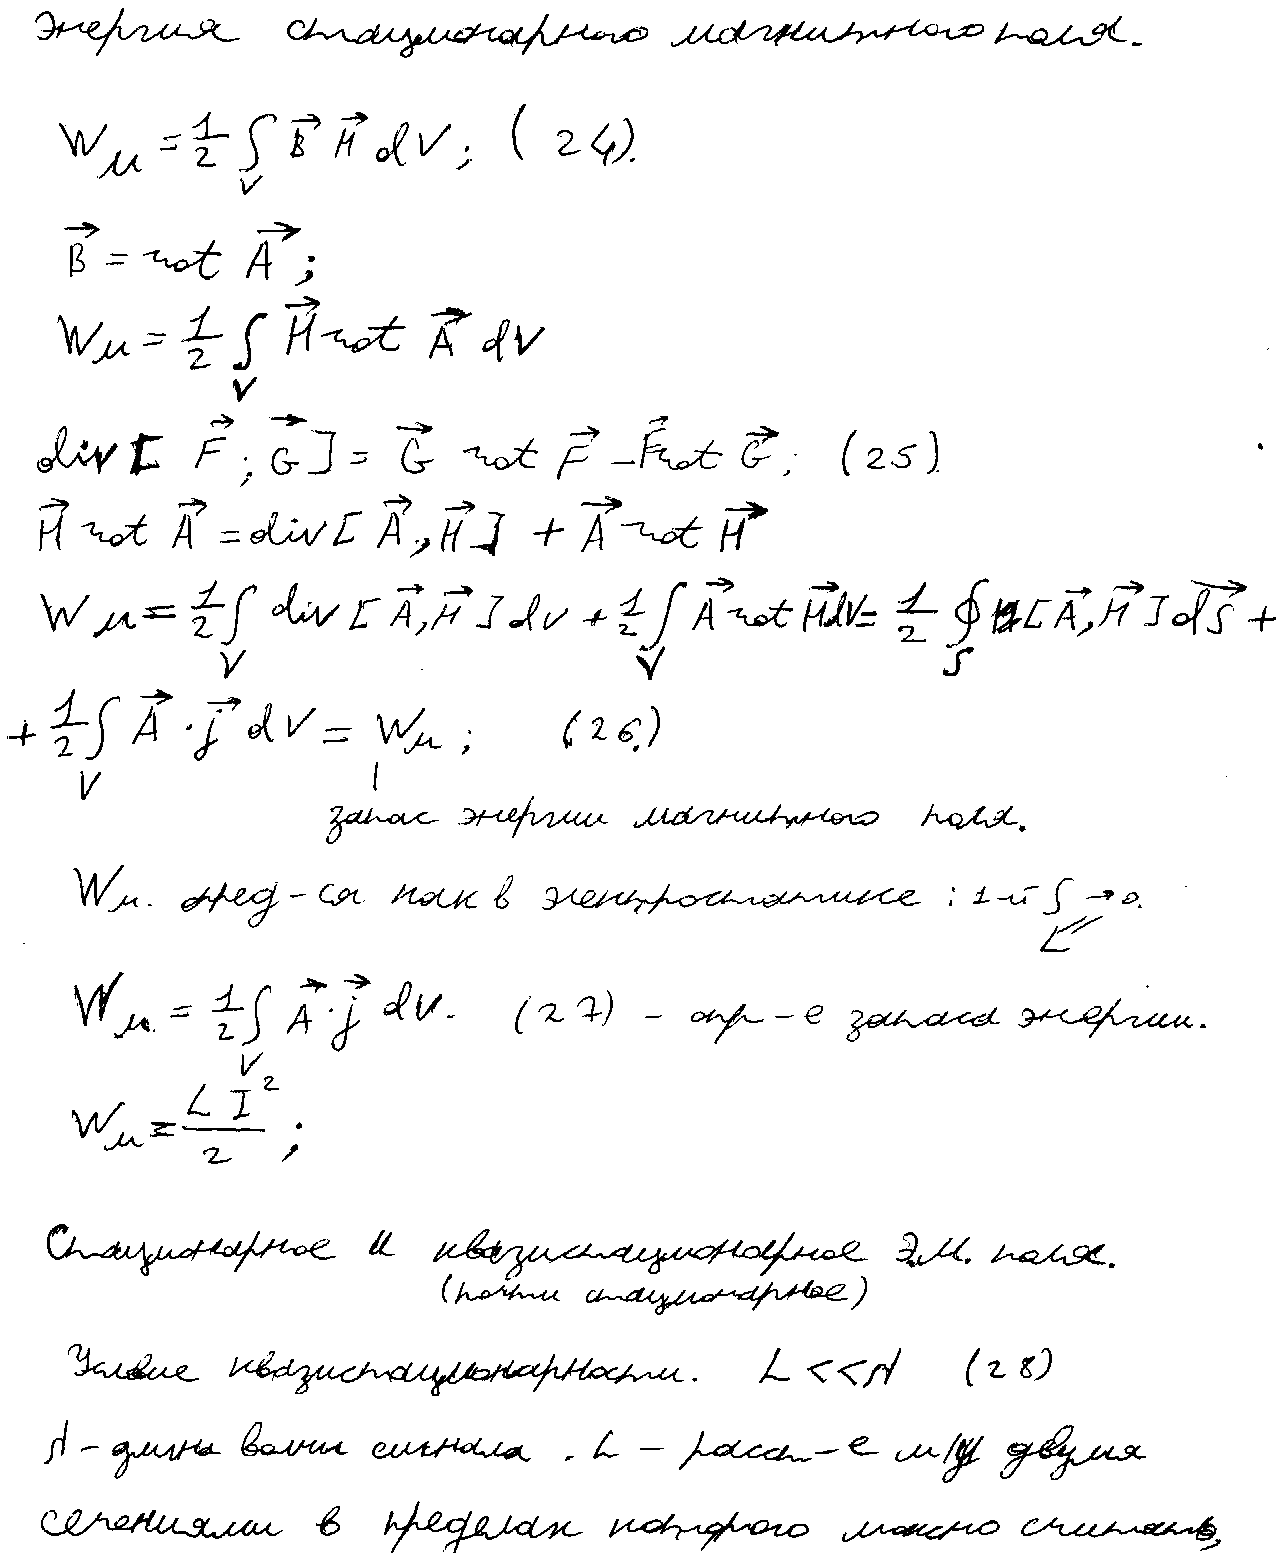 Энергия стационарного магнитного поля.
Wм = 1/2 ∫V B⃗ H⃗ dV; (24).
B⃗ = rot A⃗;
Wм = 1/2 ∫V H⃗ rot A⃗ dV
div [F⃗; G⃗] = G⃗ rot F⃗ - F⃗ rot G⃗; (25)
H⃗ rot A⃗ = div [A⃗, H⃗] + A⃗ rot H⃗
Wм = 1/2 ∫V div [A⃗, H⃗] dV + 1/2 ∫V A⃗ rot H⃗ dV = 1/2 ∮S [A⃗, H⃗] dS⃗ +
+ 1/2 ∫V A⃗ · j⃗ dV = Wм; (26.)
запас энергии магнитного поля.
Wм. опред-ся как в электростатике: 1-й ∫ → 0.
Wм. = 1/2 ∫V A⃗ · j⃗ dV. (27) - опр-е запаса энергии.
Wм = L I²/2;
Стационарное и квазистационарное Э.М. поля.
(почти стационарное)
Условие квазистационарности. L << λ (28)
λ - длина волны сигнала. L - расст-е м/у двумя
сечениями в пределах которого можно считать,